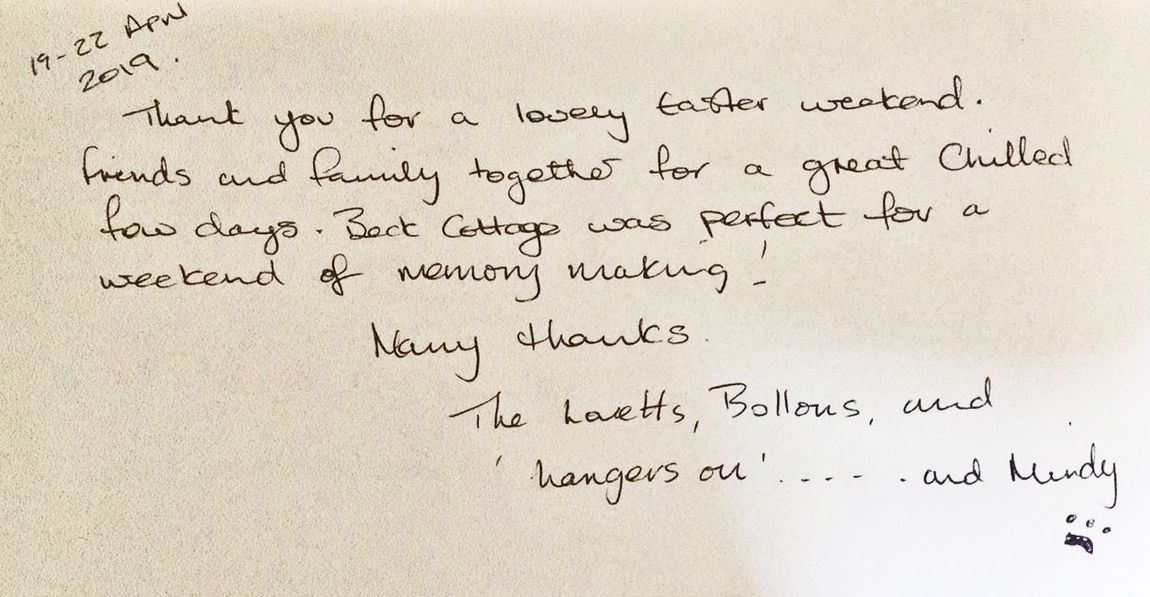 19-22 April
2019.
Thank you for a lovely Easter weekend.
Friends and family together for a great Chilled
few days. Beck Cottage was perfect for a
weekend of memory making!
Many thanks.
The Lovetts, Bollons, and
'hangers on'..... and Mindy